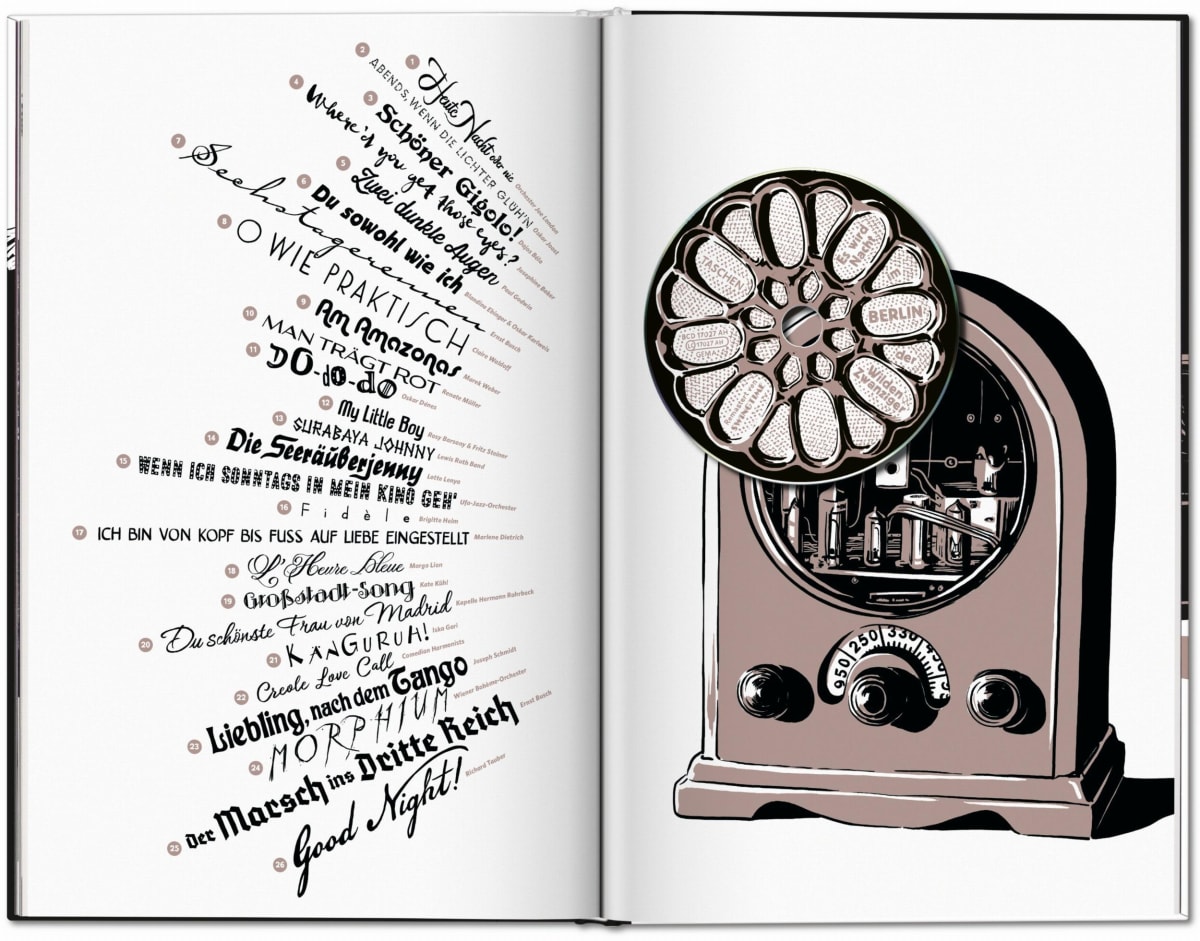 1 Heute Nacht oder nie Orchester Joe London
2 ABENDS, WENN DIE LICHTER GLÜH'N Oskar Joost
3 Schöner Gigolo! Dajos Béla
4 Where'd you get those eyes? Josephine Baker
5 Zwei dunkle Augen Paul Godwin
6 Du sowohl wie ich Blandine Ebinger & Oskar Karlweis
7 Sechstagerennen Ernst Busch
8 O WIE PRAKTISCH Claire Waldoff
9 Am Amazonas Marek Weber
10 MAN TRÄGT ROT Renate Müller
11 DO-do-do Oskar Dénes
12 My Little Boy Rosy Barsony & Fritz Steiner
13 SURABAYA JOHNNY Lewis Ruth Band
14 Die Seeräuberjenny Lotte Lenya
15 WENN ICH SONNTAGS IN MEIN KINO GEH' Ufa-Jazz-Orchester
16 Fidèle Brigitte Helm
17 ICH BIN VON KOPF BIS FUSS AUF LIEBE EINGESTELLT Marlene Dietrich
18 L'Heure Bleue Margo Lion
19 Großstadt-Song Kate Kühl
20 Du schönste Frau von Madrid Kapelle Hermann Rohrbeck
21 KÄNGURUH! Iska Geri
22 Creole Love Call Comedian Harmonists
23 Liebling, nach dem Tango Joseph Schmidt
24 MORPHIUM Wiener Bohème-Orchester
25 Der Marsch ins Dritte Reich Ernst Busch
26 Good Night! Richard Tauber
TASCHEN
Es wird
Nacht
im
BERLIN
der
Wilden
Zwanziger
BCD 17027 AH
LC 17027 AH
GEMA
SWING TIME
950 250 330 450